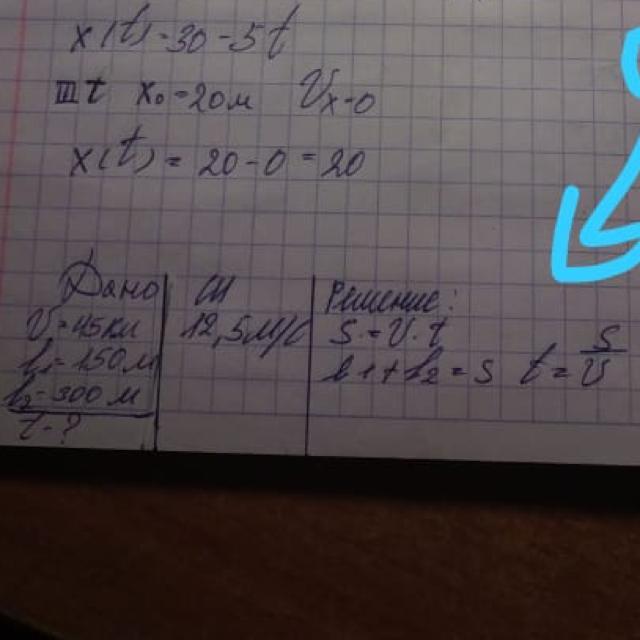 x(t)=30-5t
III t x₀=20м Vx=0
x(t) = 20-0 = 20
Дано СИ Решение:
V=45км 12,5м/с S=V·t
l₁=150м l1+l2=S t=S/V
l₂=300м
t-?